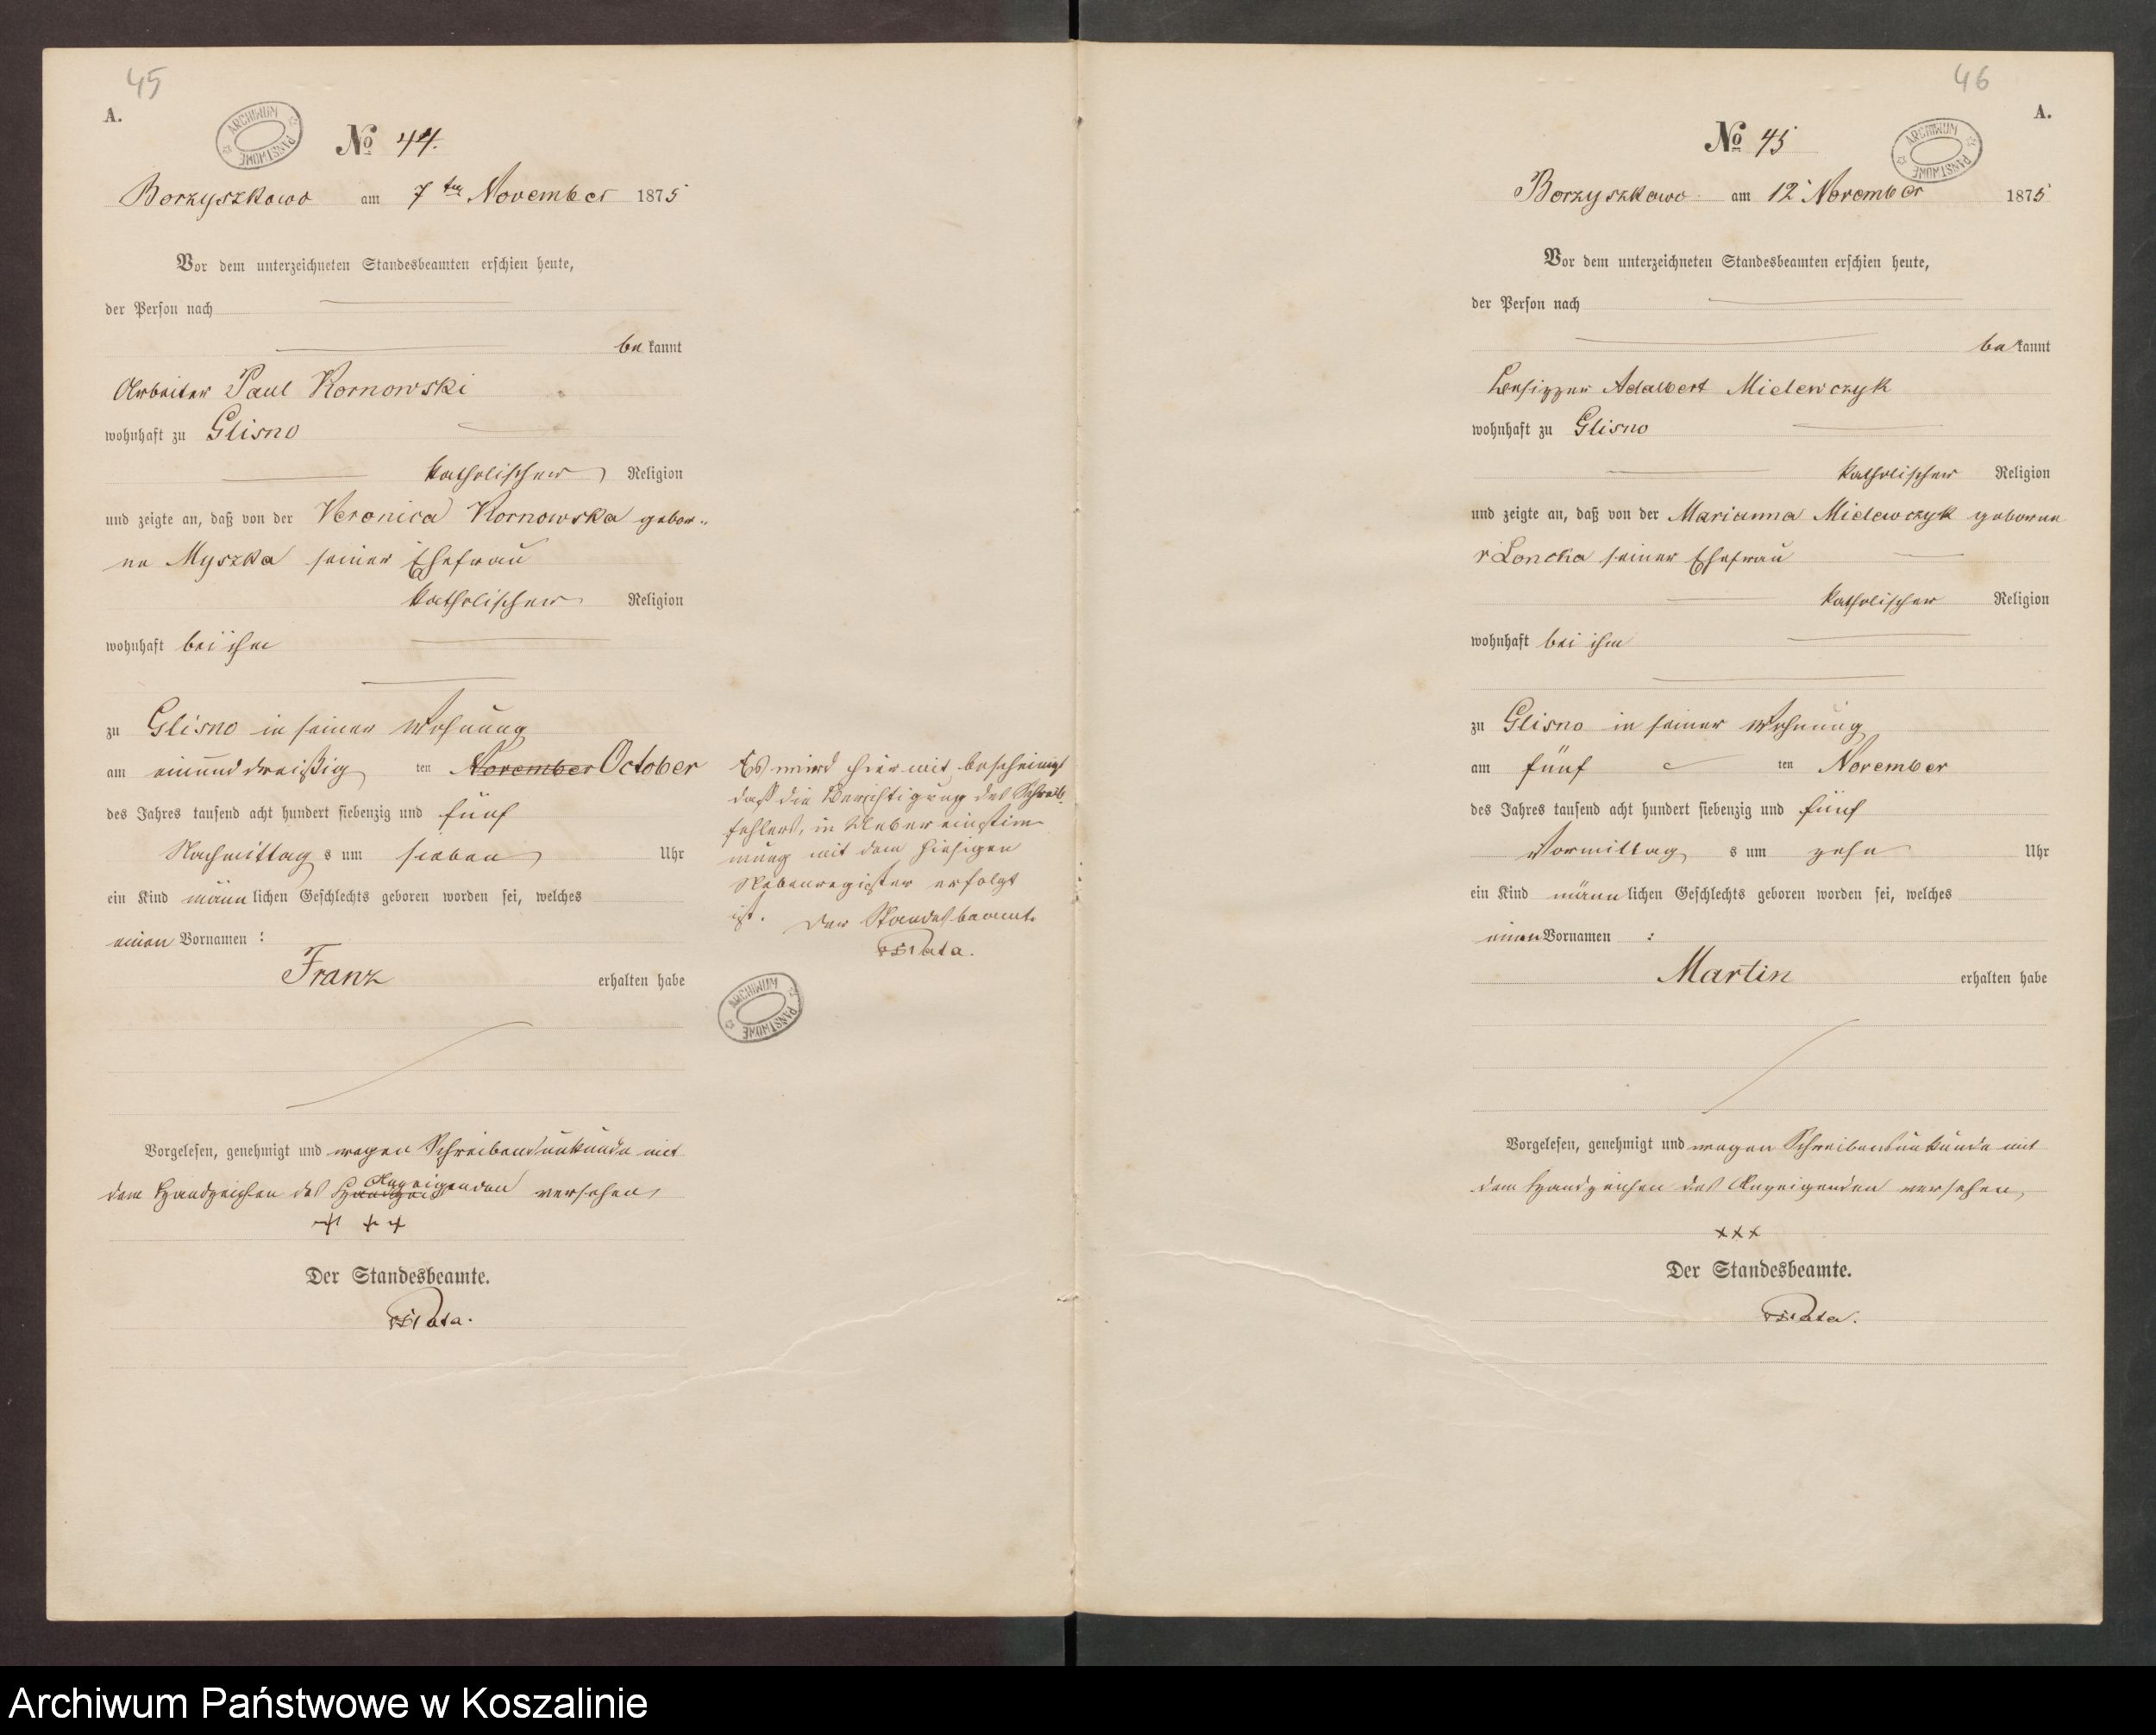 45
A.
ARCHIWUM PAŃSTWOWE
No 44.
Borzyszkowo am 7ten November 1875
Vor dem unterzeichneten Standesbeamten erschien heute,
der Person nach
be kannt
Arbeiter Paul Kornowski
wohnhaft zu Glisno
katholischer Religion
und zeigte an, daß von der Veronica Kornowska gebor-
ne Myszka seiner Ehefrau
katholischer Religion
wohnhaft bei ihm
zu Glisno in seiner Wohnung
am einunddreißig ten November October
des Jahres tausend acht hundert siebenzig und fünf
Nachmittag s um sieben Uhr
ein Kind männ lichen Geschlechts geboren worden sei, welches
einen Vornamen :
Franz erhalten habe
Vorgelesen, genehmigt und wegen Schreibensunkunde mit
dem Handzeichen des Anzeigenden versehen,
+ + +
Der Standesbeamte.
Es wird hiermit bescheinigt
daß die Berichtigung des Schreib-
fehlers, in Uebereinstim-
mung mit dem hiesigen
Nebenregister erfolgt
ist. Der Standesbeamte
ARCHIWUM PAŃSTWOWE
46
A.
ARCHIWUM PAŃSTWOWE
No 45
Borzyszkowo am 12 November 1875
Vor dem unterzeichneten Standesbeamten erschien heute,
der Person nach
be kannt
Besitzer Adalbert Mielewczyk
wohnhaft zu Glisno
katholischer Religion
und zeigte an, daß von der Marianna Mielewczyk geborene
seiner Ehefrau
katholischer Religion
wohnhaft bei ihm
zu Glisno in seiner Wohnung
am fünf ten November
des Jahres tausend acht hundert siebenzig und fünf
Vormittag s um zehn Uhr
ein Kind männ lichen Geschlechts geboren worden sei, welches
einen Vornamen :
Martin erhalten habe
Vorgelesen, genehmigt und wegen Schreibensunkunde mit
dem Handzeichen des Anzeigenden versehen,
x x x
Der Standesbeamte.
Archiwum Państwowe w Koszalinie